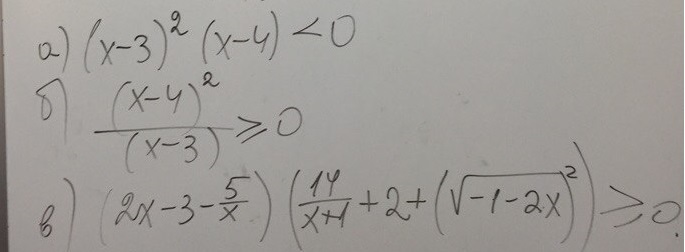 а) (x-3)² (x-4) < 0
б) (x-4)² / (x-3) ≥ 0
в) (2x-3-5/x) (14/(x+1) + 2 + (√(-1-2x))²) ≥ 0.